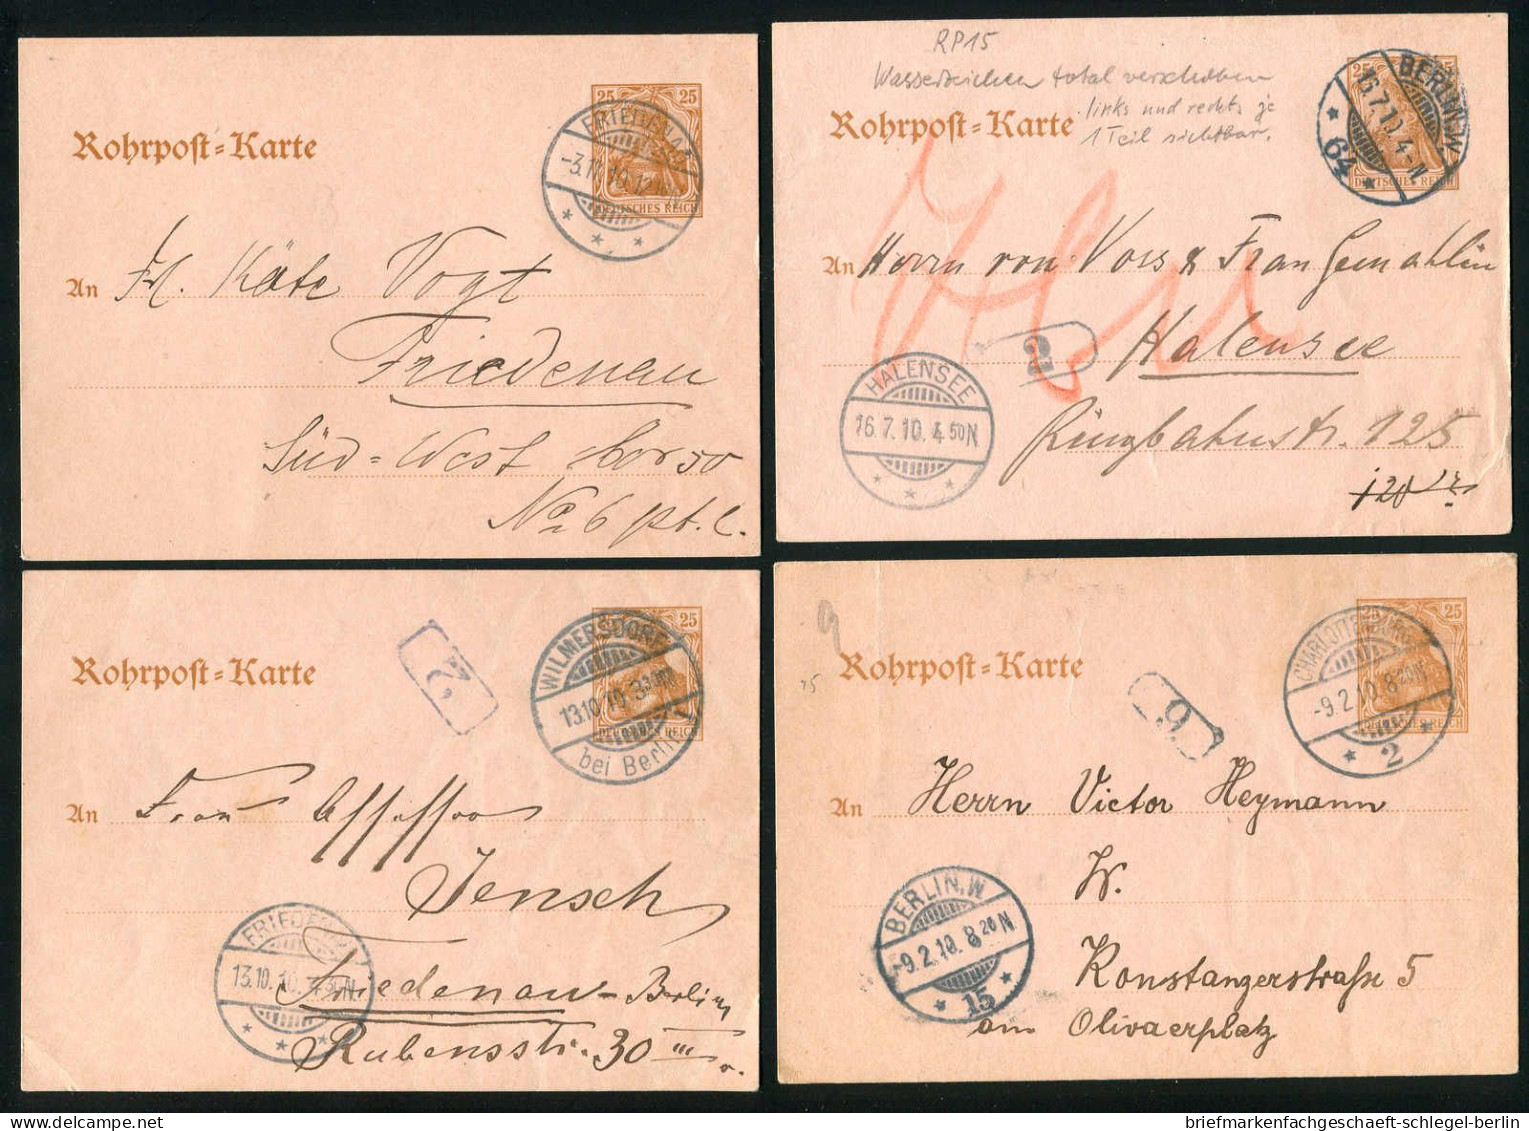 Rohrpost=Karte
25 25
DEUTSCHES REICH
FRIEDENAU
-3.11.10.12
An Frl. Käte Vogt
Friedenau
Süd=West
No 6 pt. l.
RP15
Wasserzeichen total verschoben
links und rechts je
1 Teil sichtbar.
Rohrpost=Karte
25
DEUTSCHES REICH
BERLIN.W
16.7.10. 4-N
* 64 *
An Herrn von Voss & Frau Gemahlin
Halensee
2
HALENSEE
16.7.10. 4 50N
Ringbahnstr. 125
Rohrpost=Karte
2
25
DEUTSCHES REICH
WILMERSDORF
13.10.10. 3 30N
bei Berlin
An Frau Assessor
Jensch
FRIEDENAU
13.10.10. 4 30N
Friedenau-Berlin
Rubensstr. 30 III
Rohrpost=Karte
9
25 25
DEUTSCHES REICH
CHARLOTTENBURG
-9.2.10. 8 20N
* 2 *
An Herrn Victor Heymann
W.
BERLIN.W
-9.2.10. 8 20N
* 15 *
Konstanzerstraße 5
am Olivaerplatz
briefmarkenfachgeschaeft-schlegel-berlin